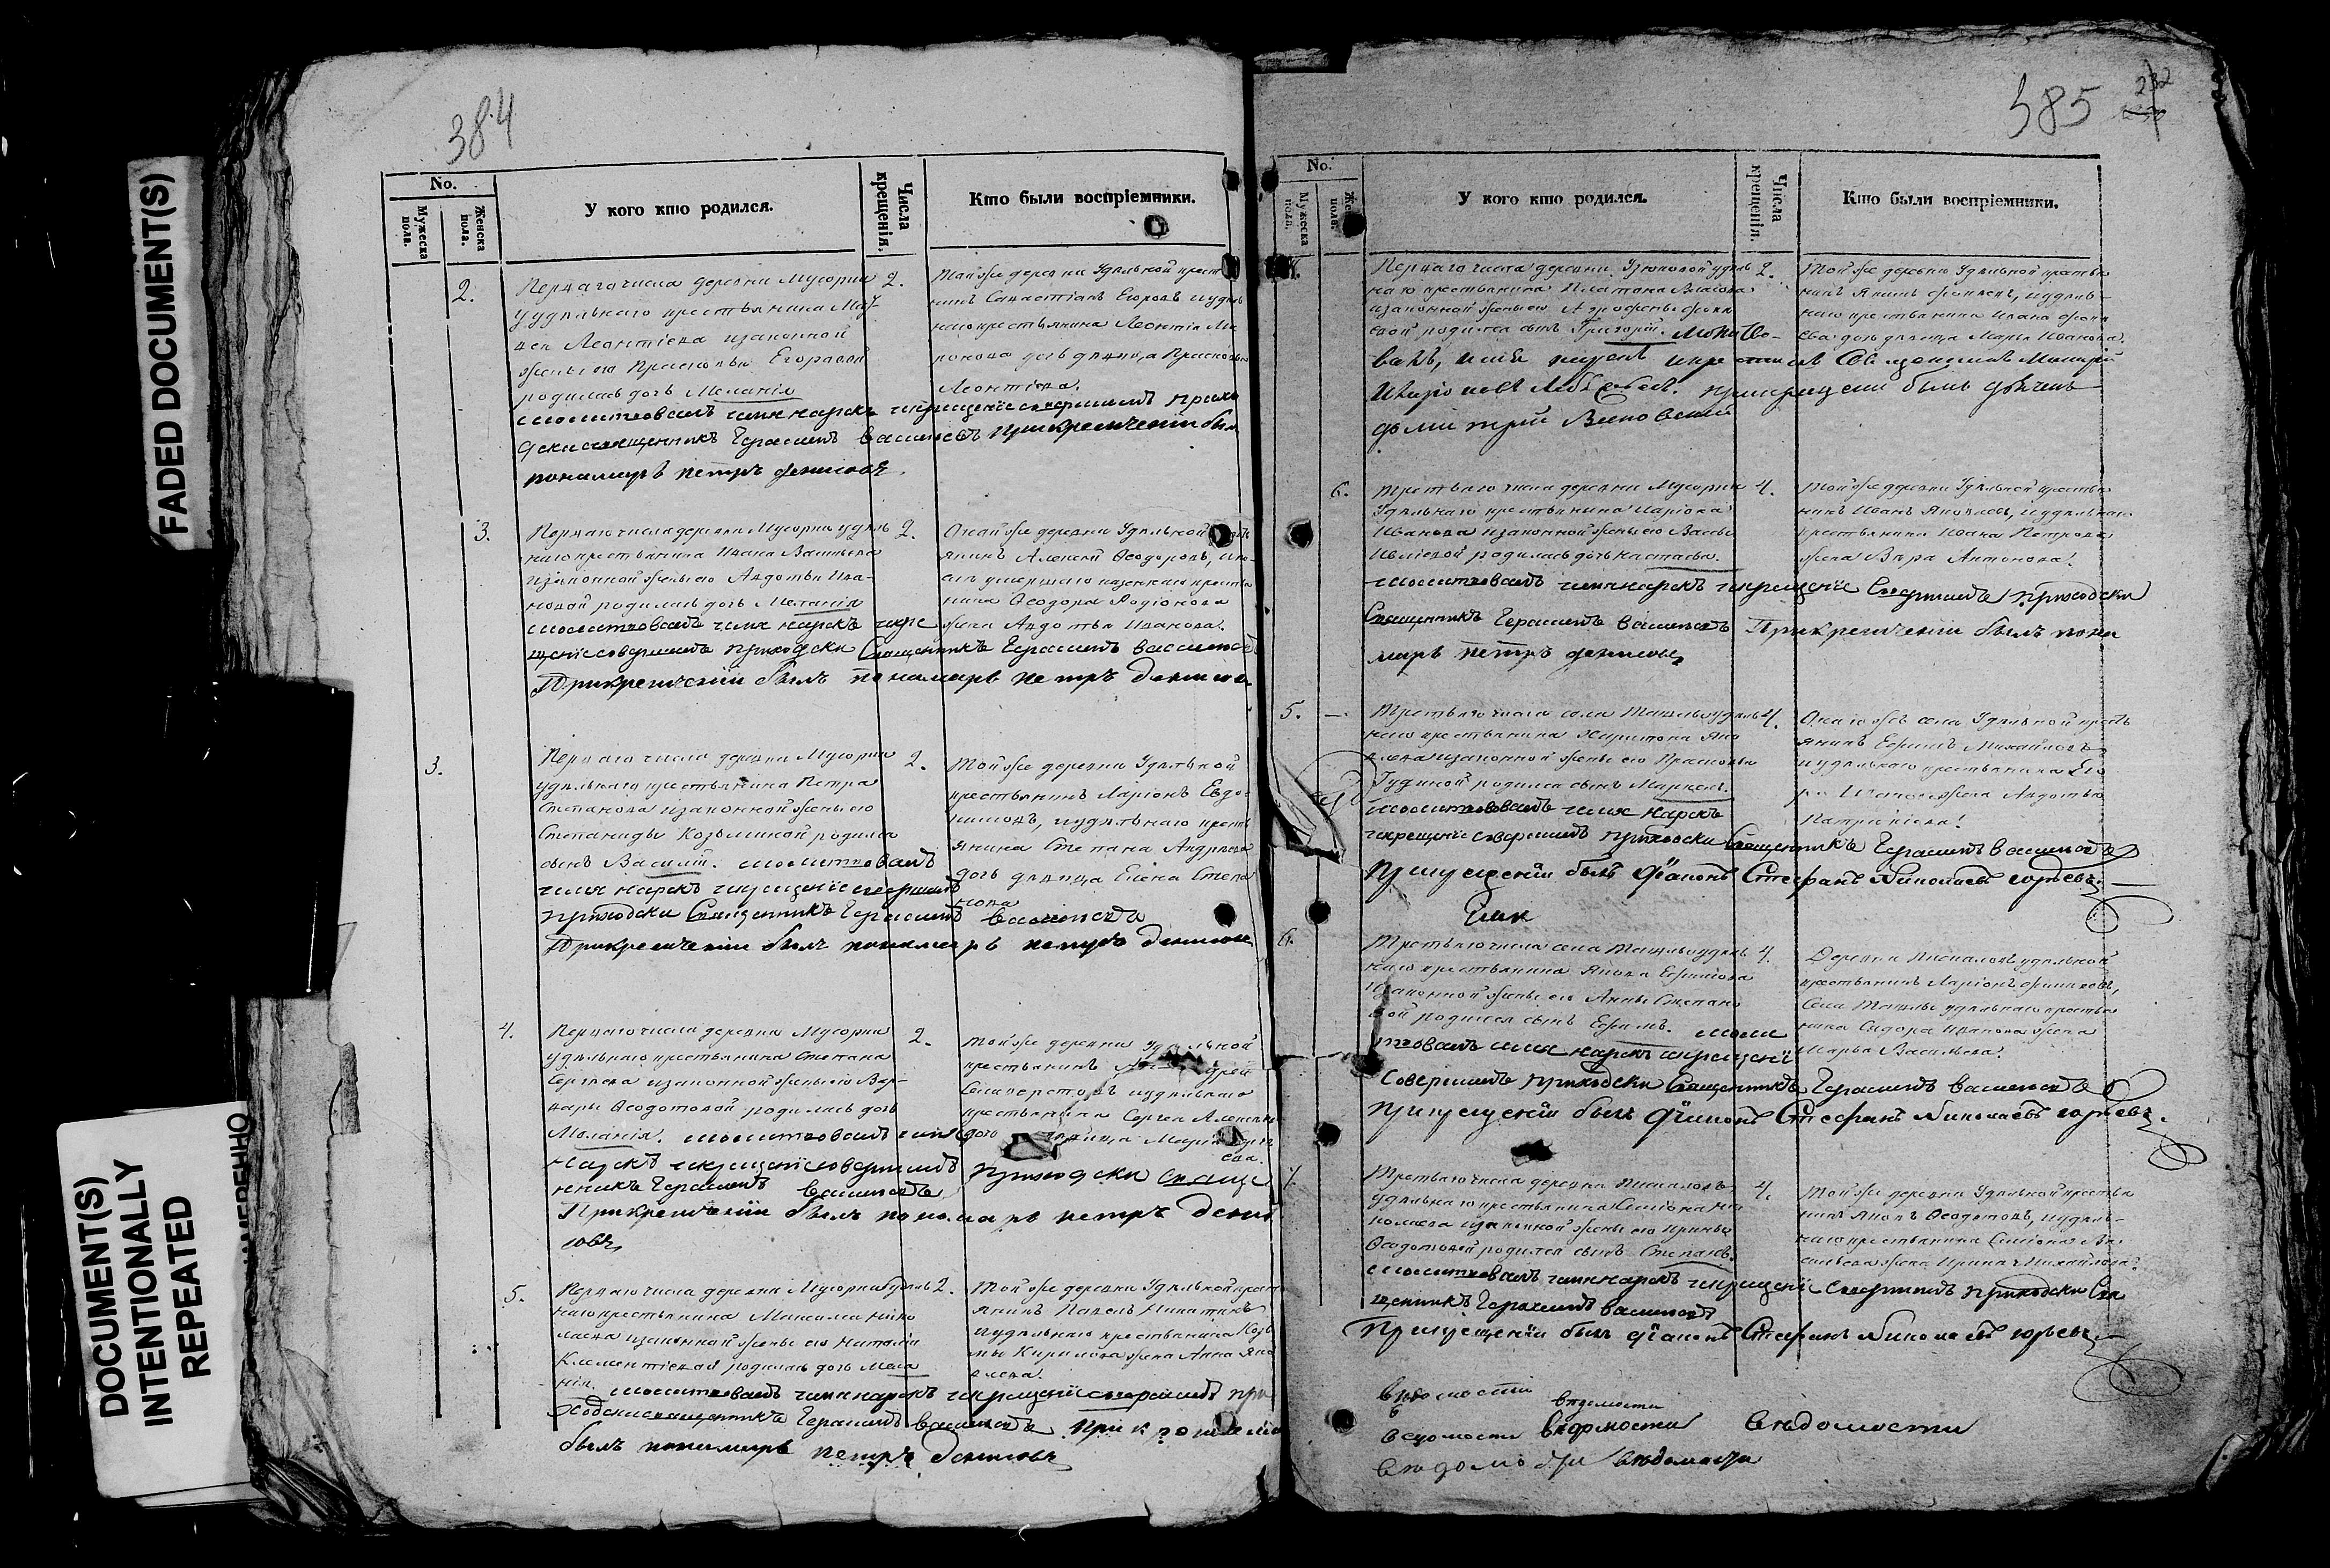 384
No.
Мужеска пола.
Женска пола.
У кого кто родился.
Числа крещенія.
Кто были воспріемники.
2.
Перваго числа деревни Мусорки
удѣльнаго крестьянина
Леонтьева и законной
жены его Прасковьи Егоровой
родилась дочь Меланія
молитвовалъ имя нарекъ и крещеніе совершилъ прихо
дски священникъ Герасимъ Васильевъ При крещеніи былъ
пономарь петръ денисовъ
2.
Той же деревни Удѣльной крест
нинъ Севастіанъ Егоровъ и удѣль
наго крестьянина Леонтія
дочь дѣвица Прасковья
Леонтіева.
3.
Перваго числа деревни Мусорки удѣль
наго крестьянина Ивана Васильева
и законной жены его Авдотьи Ива-
новой родилась дочь Меланія
молитвовалъ имя нарекъ и кре
щеніе совершилъ приходски Священникъ Герасимъ Васильевъ
При крещеніи былъ пономарь петръ денисовъ
2.
Оной же деревни Удѣльной кресть
янинъ Алексей Ѳеодоровъ,
умершаго казеннаго крестья
нина Ѳеодора Родіонова
жена Авдотья Иванова.
3.
Перваго числа деревни Мусорки
удѣльнаго крестьянина Петра
Степанова и законной жены его
Степаниды Козьминой родился
сынъ Василій. молитвовалъ
имя нарекъ и крещеніе совершилъ
приходски Священникъ Герасимъ Васильевъ
При крещеніи былъ пономарь петръ денисовъ
2.
Той же деревни Удѣльной
крестьянинъ Ларіонъ Евдо
кимовъ, и удѣльнаго кресть
янина Степана Андреева
дочь дѣвица Елена Степа
нова
4.
Перваго числа деревни Мусорки
удѣльнаго крестьянина Степана
Сергѣева и законной жены его Вар-
вары Ѳеодотовой родилась дочь
Меланія. молитвовалъ имя
нарекъ и крещеніе совершилъ приходски Свяще
нникъ Герасимъ Васильевъ
При крещеніи былъ пономарь петръ дени
совъ
2.
Той же деревни Удѣльной
крестьянинъ
Селиверстовъ и удѣльнаго
крестьянина Сергея Алексеева
дочь дѣвица Марья
ева.
5.
Перваго числа деревни Мусорки Удѣль
наго крестьянина Максима Нико
лаева и законной жены его Наталіи
Клементіевой родилась дочь Мела
нія. молитвовалъ имя нарекъ и крещеніе совершилъ при
ходски священникъ Герасимъ Васильевъ при крещеніи
былъ пономарь петръ денисовъ
2.
Той же деревни Удѣльной крест
янинъ Павелъ Никитинъ
и удѣльнаго крестьянина Козь
мы Кирилова жена Анна Яко
влева.
385
232
No.
Мужеска пола.
Женска пола.
У кого кто родился.
Числа крещенія.
Кто были воспріемники.
4.
Перваго числа деревни Узюковой удѣль
наго крестьянина Платона Власова
и законной жены его Агрофены
родился сынъ Григорій. Молитво-
валъ, имя нарекъ и крестилъ Священникъ
При крещеніи былъ дьячекъ
Димитрій Виновскій
2.
Той же деревни Удѣльной крестья
нинъ и удѣль-
наго крестьянина Ивана
дочь дѣвица Марья Иванова.
6.
Третьяго числа деревни Мусорки
Удѣльнаго крестьянина Ларіона
Иванова и законной жены его Васи
родилась дочь Настасья.
молитвовалъ имя нарекъ и крещеніе Совершилъ приходски
Священникъ Герасимъ Васильевъ При крещеніи былъ поно
марь петръ денисовъ
4.
Той же деревни Удѣльной крестья
нинъ Иванъ Яковлевъ, и удѣльнаго
крестьянина Ивана Петрова
жена Вѣра Антонова.
5.
—
Третьяго числа села Ташлы удѣль
наго крестьянина Харитона Яко
влева и законной жены его Прасковьи
родился сынъ Маркелъ.
молитвовалъ имя нарекъ
и крещеніе совершилъ приходски Священникъ Герасимъ Васильевъ
При крещеніи былъ дьяконъ Стефанъ Николаевъ юрьевъ
4.
Онаго же села Удѣльной кресть
янинъ Ефимъ Михайловъ
и удѣльнаго крестьянина
жена Авдотья
Патрикіева.
6.
Третьяго числа села Ташлы удѣль
наго крестьянина Якова Ефимова
и законной жены его Анны Степано
вой родился сынъ Ефимъ. моли
твовалъ имя нарекъ и крещеніе
совершилъ приходски Священникъ Герасимъ Васильевъ
При крещеніи былъ дьяконъ Стефанъ Николаевъ юрьевъ
4.
Деревни Пискаловъ удѣльной
крестьянинъ Ларіонъ
села Ташлы удѣльнаго крестья
нина Сидора Иванова жена
Марья Васильева.
7.
Третьяго числа деревни Пискаловъ
удѣльнаго крестьянина Симіона Ни
колаева и законной жены его Ирины
Ѳеодотовой родился сынъ Степанъ.
молитвовалъ имя нарекъ и крещеніе совершилъ приходски Свя
щенникъ Герасимъ Васильевъ
При крещеніи былъ дьяконъ Стефанъ Николаевъ юрьевъ
4.
Той же деревни Удѣльной крестья
нинъ Яковъ Ѳеодотовъ, и удѣль-
наго крестьянина Симіона Ва-
сильева жена Ирина Михайлова.
вѣдомости
вѣдомости
ведомости вѣдомости вѣдомости
вѣдомости вѣдомости
FADED DOCUMENT(S)
DOCUMENT(S)
INTENTIONALLY
REPEATED